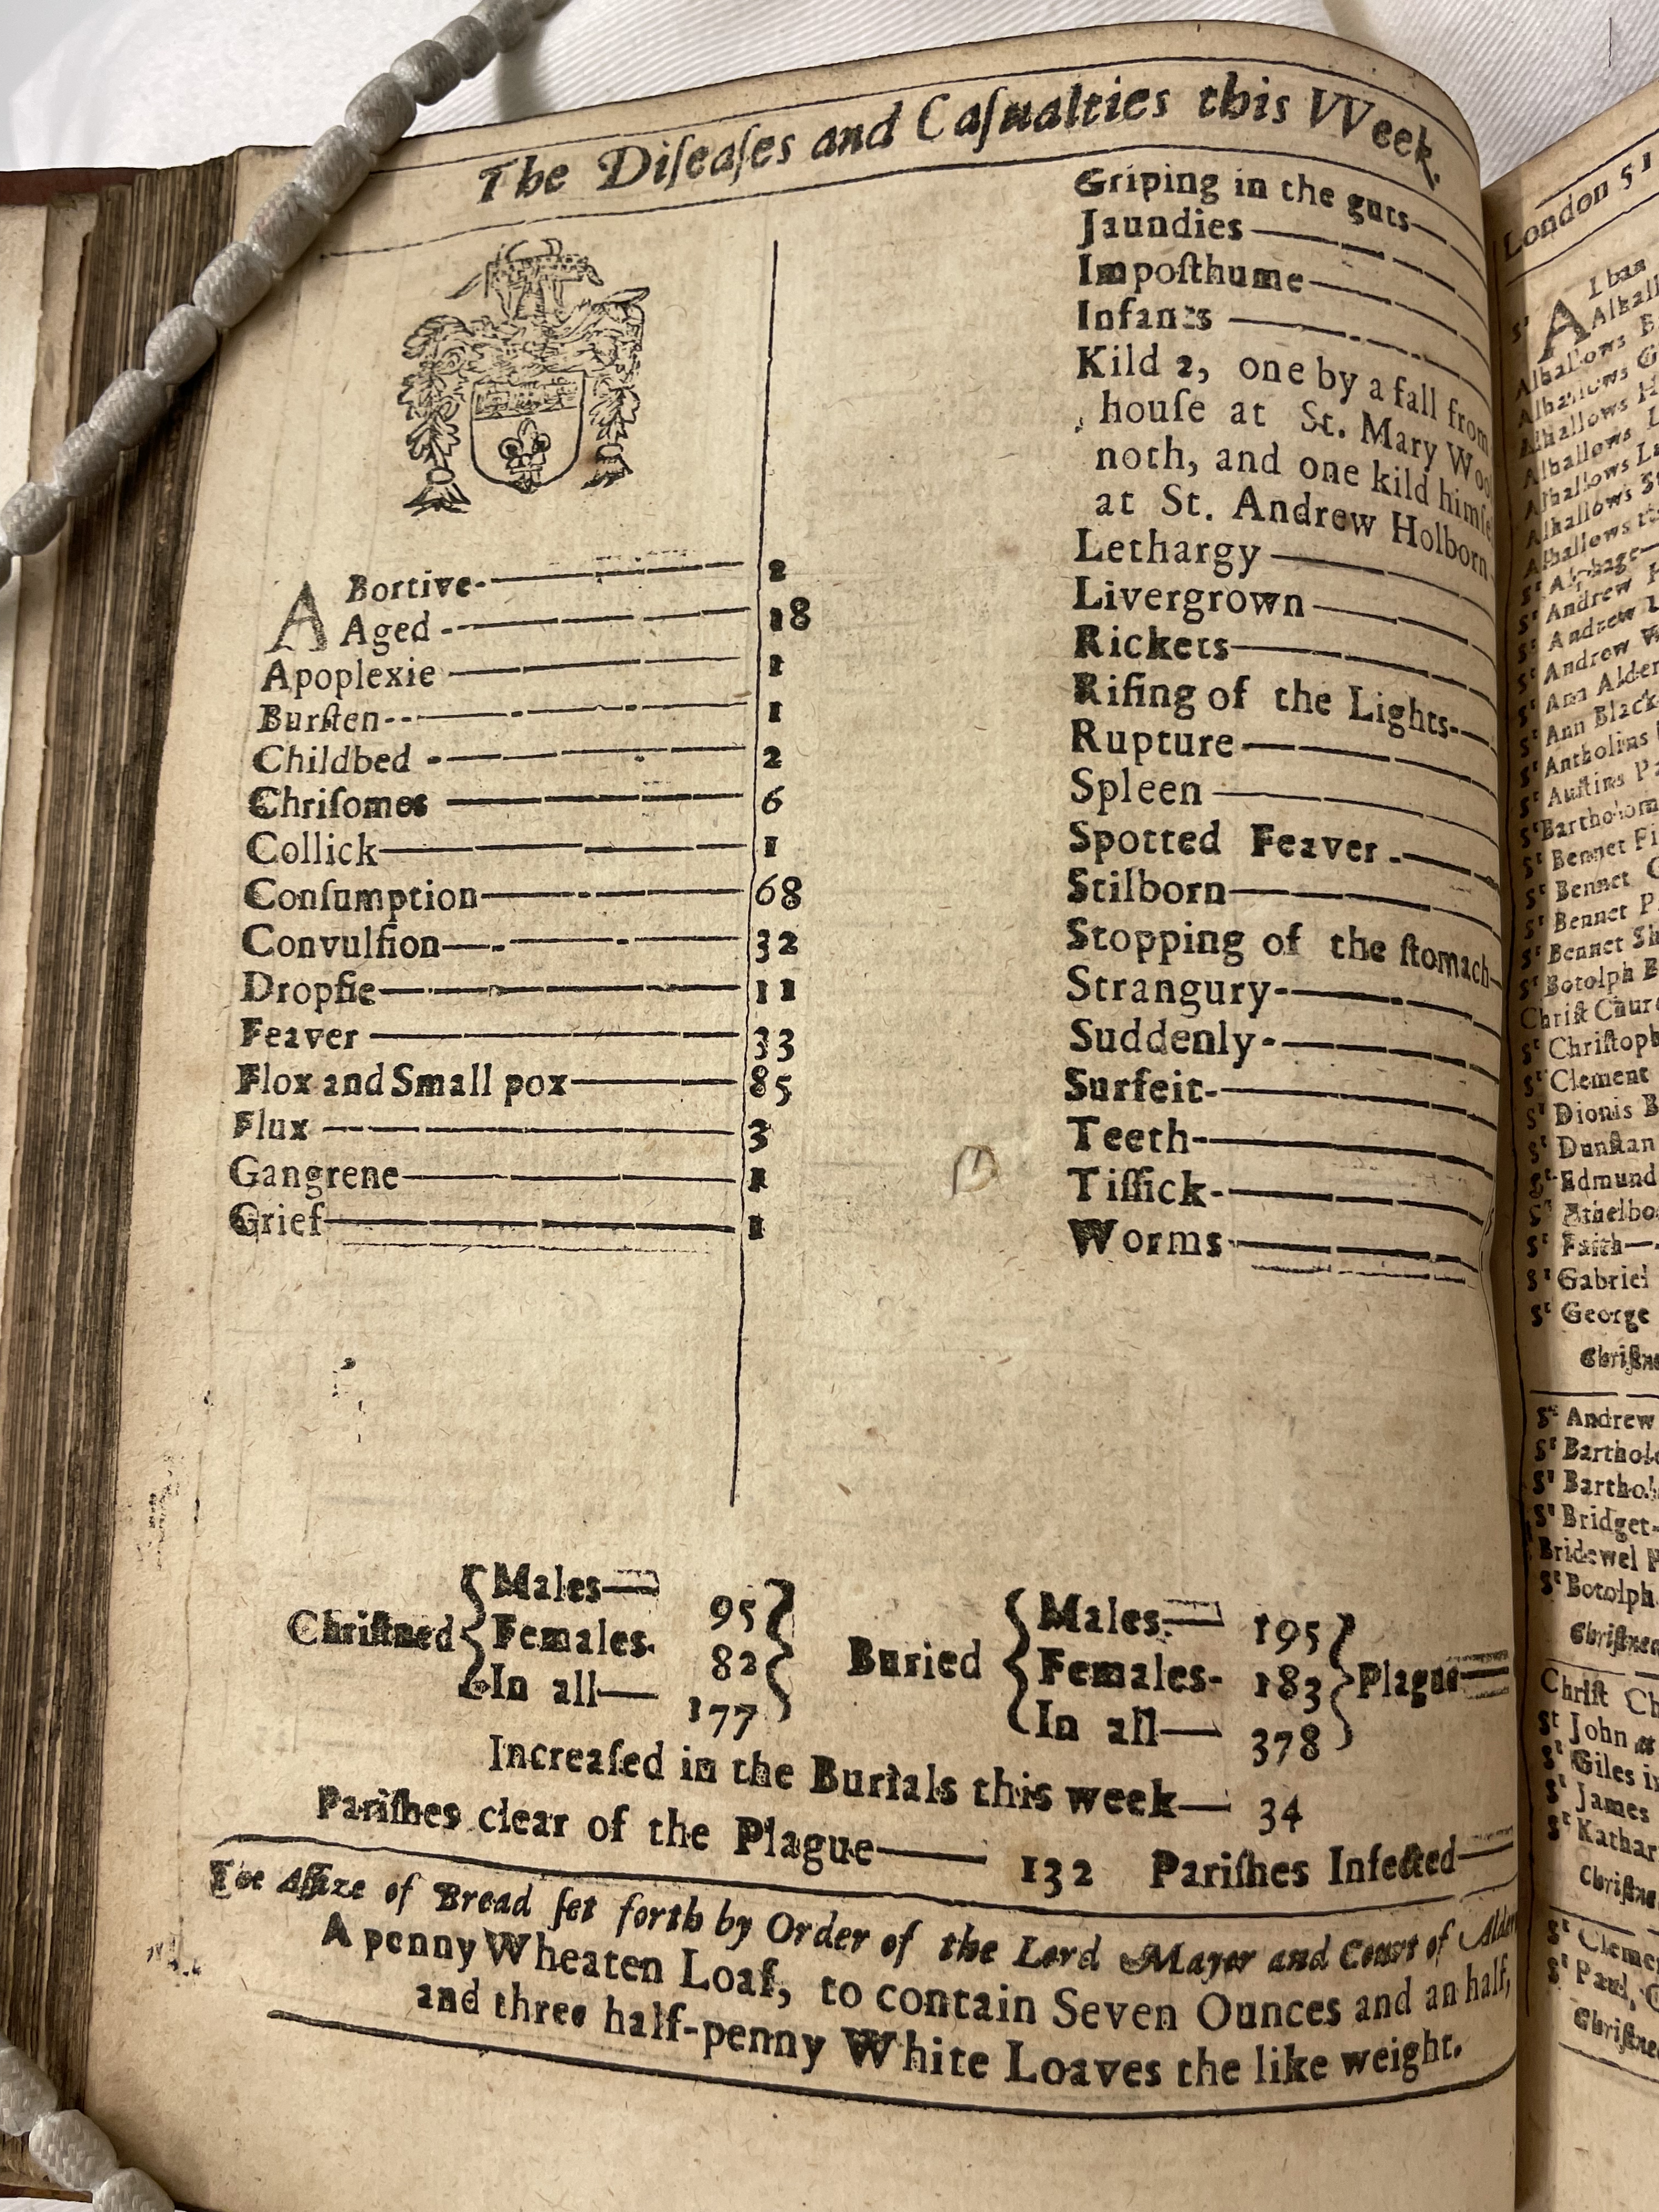 The Diſeaſes and Caſualties this VVeek.
ABortive 2
Aged 18
Apoplexie 1
Burſten 1
Childbed 2
Chriſomes 6
Collick 1
Conſumption 68
Convulſion 32
Dropſie 11
Feaver 33
Flox and Small pox 85
Flux 3
Gangrene 1
Grief 1
Griping in the guts
Jaundies
Impoſthume
Infants
Kild 2, one by a fall from
houſe at St. Mary Woo
noth, and one kild himſe
at St. Andrew Holborn
Lethargy
Livergrown
Rickets
Riſing of the Lights
Rupture
Spleen
Spotted Feaver
Stilborn
Stopping of the ſtomach
Strangury
Suddenly
Surfeit
Teeth
Tiſſick
Worms
Chriſtned
Males 95
Females 82
In all 177
Buried
Males 195
Females 183
In all 378
Plague
Increaſed in the Burials this week 34
Pariſhes clear of the Plague 132 Pariſhes Infected
The Aſſize of Bread ſet forth by Order of the Lord Mayor and Court of Alder
A penny Wheaten Loaf, to contain Seven Ounces and an half,
and three half-penny White Loaves the like weight.
London 51
St Alban
Alhall
Alhallows B
Alhallows G
Alhallows H
Alhallows L
Alhallows La
Alhallows St
Alhallows
St Alphage
St Andrew H
St Andrew
St Andrew W
St Ann Alder
St Ann Black
St Antholins
St Auſtins Pa
St Bartholom
St Bennet Fi
St Bennet G
St Bennet P
St Bennet Sh
St Botolph B
Chriſt Churc
St Chriſtoph
St Clement
St Dionis B
St Dunſtan
St Edmund
St Ethelbo
St Faith
St Gabriel
St George
Chriſtne
St Andrew
St Barthol
St Barthol
St Bridget
Bridewel P
St Botolph
Chriſtned
Chriſt Ch
St John at
St Giles in
St James
St Kathar
Chriſtne
St Cleme
St Paul, C
Chriſtne